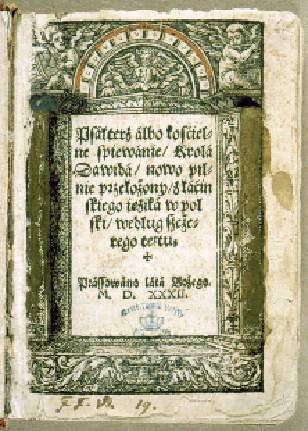 Psałterz álbo kościel-
ne śpiewánie/ Krolá
Dawidá/ nowo pil-
nie przełożony/ z łáciń
skiego ięzyká w pol
ski/ według szcze-
rego textu.
Prássowano látá Bożego.
M. D. XXXII.
19.